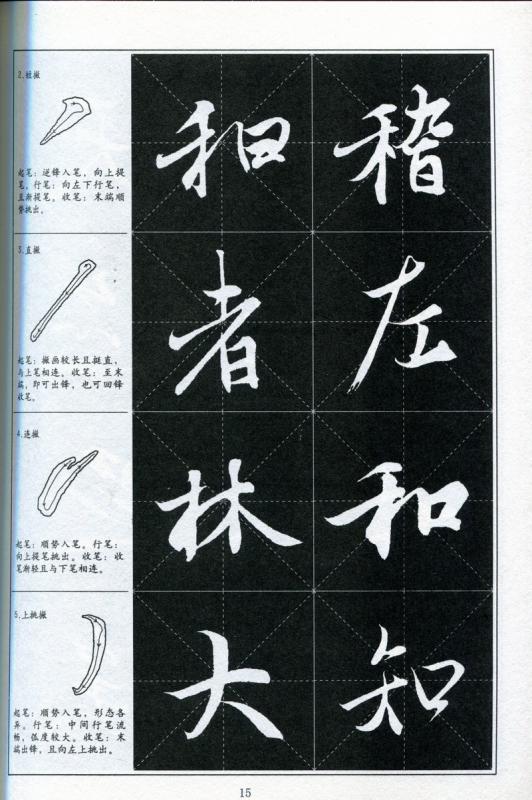 2.短撇
起笔：逆锋入笔，向上提
笔。行笔：向左下行笔，
且渐提笔。收笔：末端顺
势挑出。
和 稽
3.直撇
起笔：撇画较长且挺直，
与上笔相连。收笔：至末
端，即可出锋，也可回锋
收笔。
者 左
4.连撇
起笔：顺势入笔。行笔：
向上提笔挑出。收笔：收
笔渐轻且与下笔相连。
林 和
5.上挑撇
起笔：顺势入笔，形态各
异。行笔：中间行笔流
畅，弧度较大。收笔：末
端出锋，且向左上挑出。
大 知
15